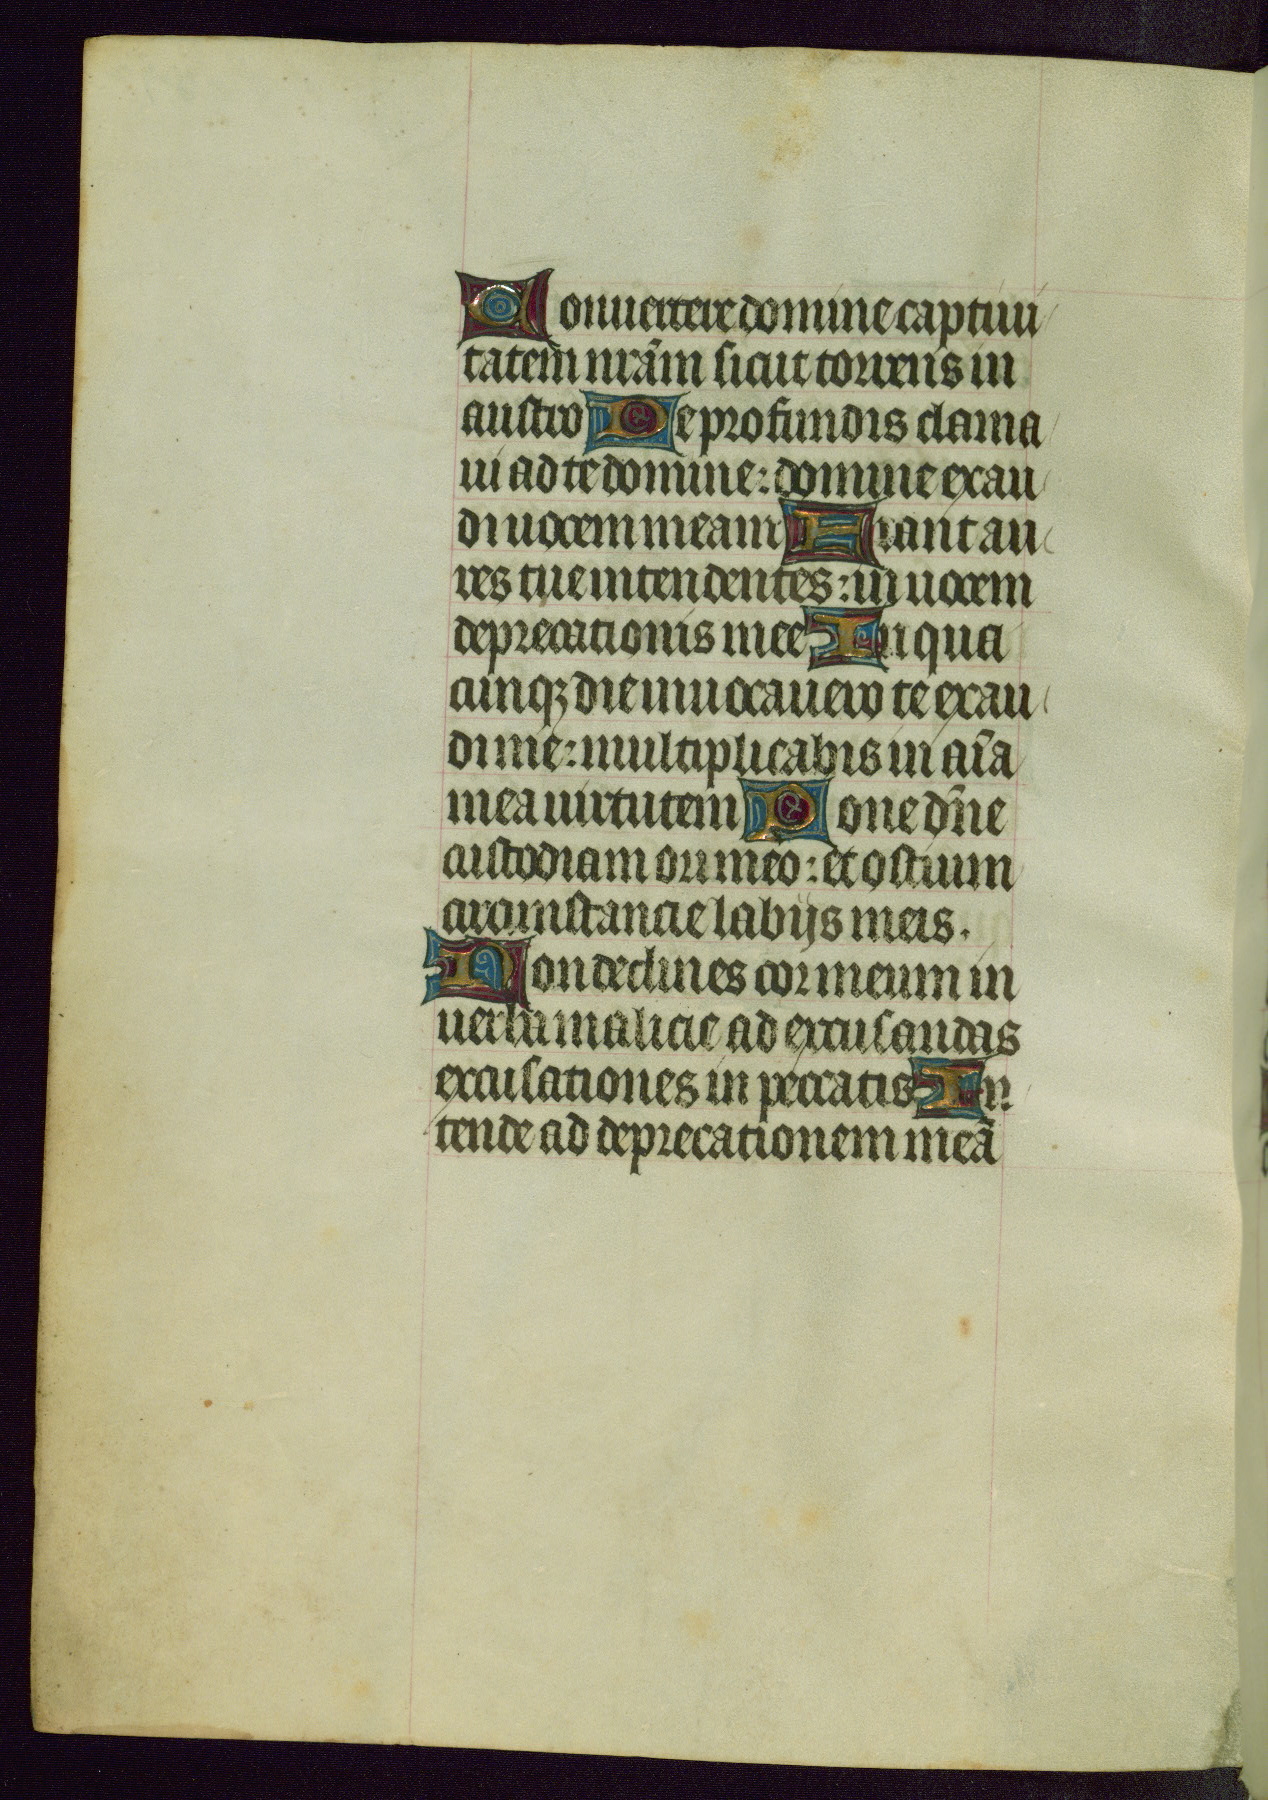 Conuertere domine captiui
tatem nr̄am sicut torrens in
austro De profundis clama
ui ad te domine: domine exau
di uocem meam Fiant au
res tue intendentes: in uocem
deprecationis mee In qua
cunqꝫ die inuocauero te exau
di me: multiplicabis in aīa
mea uirtutem Pone dn̄e
custodiam ori meo: et ostium
circumstancie labijs meis.
Non declines cor meum in
uerba malicie ad excusandas
excusationes in peccatis In
tende ad deprecationem meā